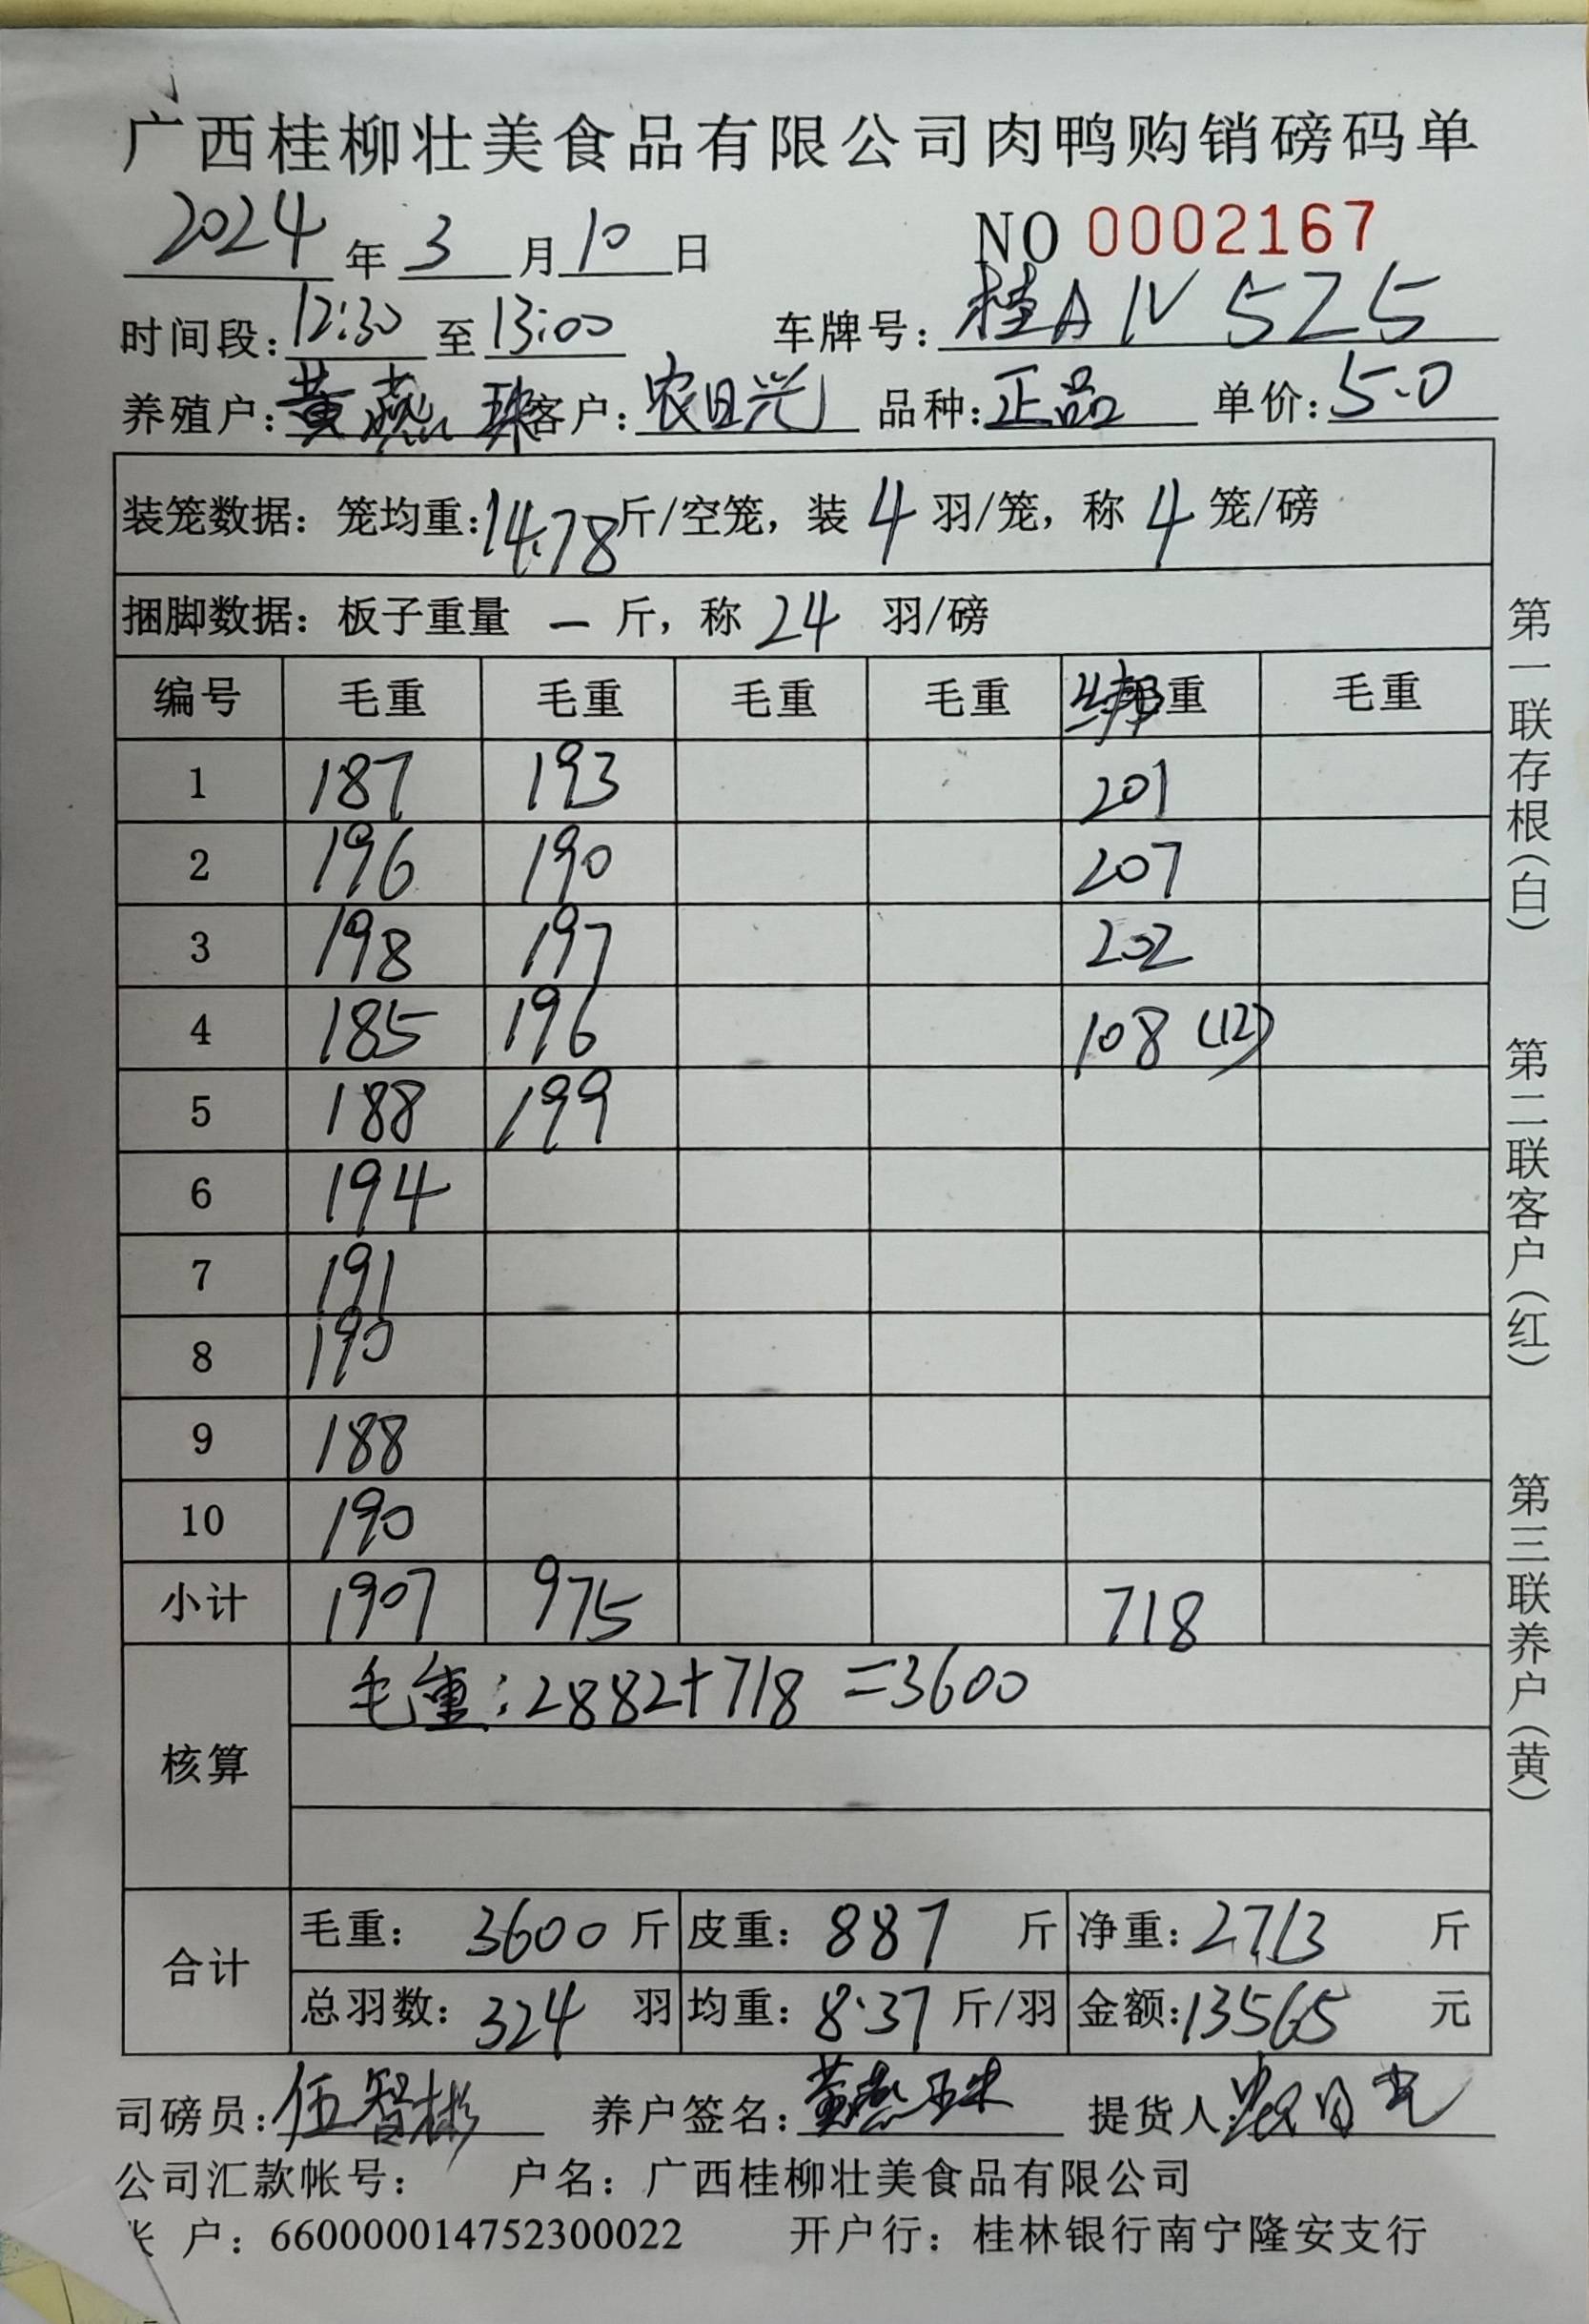 广西桂柳壮美食品有限公司肉鸭购销磅码单
2024年3月10日 NO 0002167
时间段:12:30至13:00 车牌号:桂A 525
养殖户:黄燕珠 客户:农日光 品种:正品 单价:5.0
装笼数据：笼均重:14.78斤/空笼，装4羽/笼，称4笼/磅
捆脚数据：板子重量 一 斤，称 24 羽/磅
编号 毛重 毛重 毛重 毛重 毛重 毛重
1 187 193 201
2 196 190 207
3 198 197 202
4 185 196 108 (12)
5 188 199
6 194
7 191
8 190
9 188
10 190
小计 1907 975 718
核算 毛重:2882+718=3600
合计 毛重：3600斤 皮重：887斤 净重:2713斤
总羽数：324羽 均重：8.37斤/羽 金额:13565元
司磅员:伍智彬 养户签名:黄燕珠 提货人:农日光
公司汇款帐号： 户名：广西桂柳壮美食品有限公司
户：660000014752300022 开户行：桂林银行南宁隆安支行
第一联存根（白） 第二联客户（红） 第三联养户（黄）